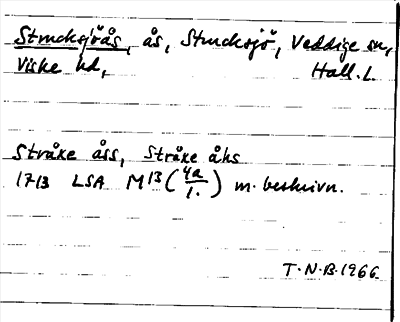 Strucksjöås, ås, Strucksjö, Veddige sn,
Viske hd, Hall. L.
Stråke åss, Stråke åhs
1713 LSA M13 (4a/1.) m. beskrivn.
T.N.B. 1966.